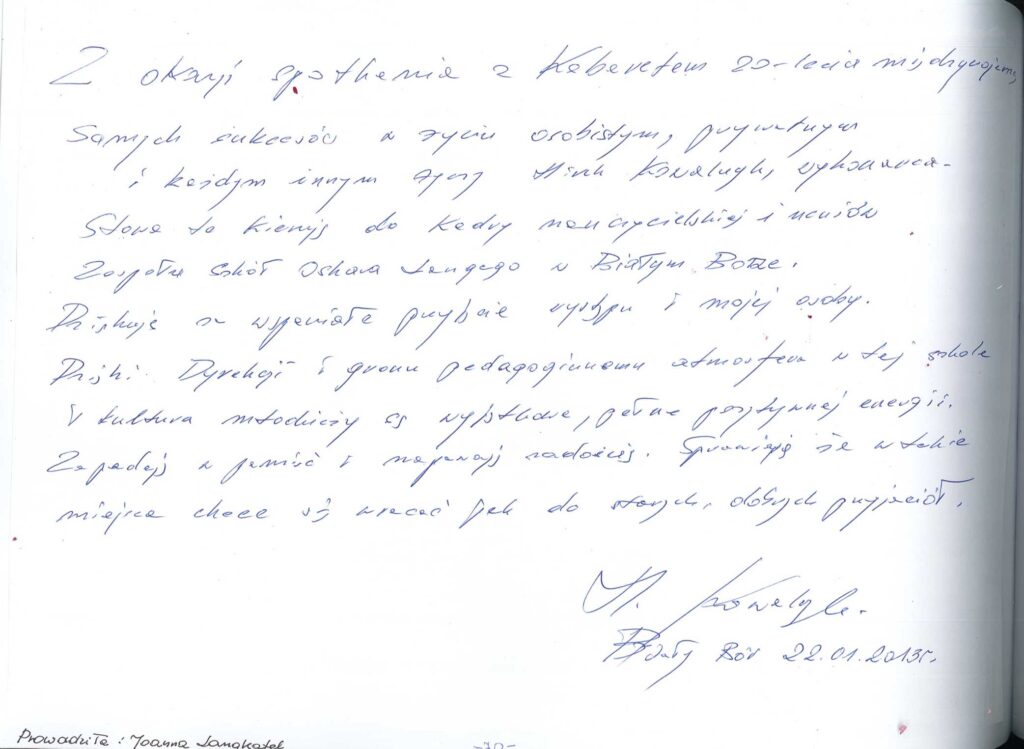 Z okazji spotkania z Kabaretem 20-lecia międzywojenn.
Samych sukcesów w życiu osobistym, prywatnym
i każdym innym życzy Kowalyk, wykonawca-
Słowa te kieruję do kadry nauczycielskiej i uczniów
Zespołu Szkół Oskara Langego w Białym Borze.
Dziękuję za wspaniałe przyjęcie występu i mojej osoby.
Dzięki Dyrekcji i gronu pedagogicznemu atmosfera w tej szkole
i kultura młodzieży są wyjątkowe, pełne pozytywnej energii.
Zapadają w pamięć i napawają radością. Sprawiają że w takie
miejsca chce się wracać jak do starych, dobrych przyjaciół.
Kowalyk.
Biały Bór 22.01.2013r.
Prowadziła: Joanna
-70-